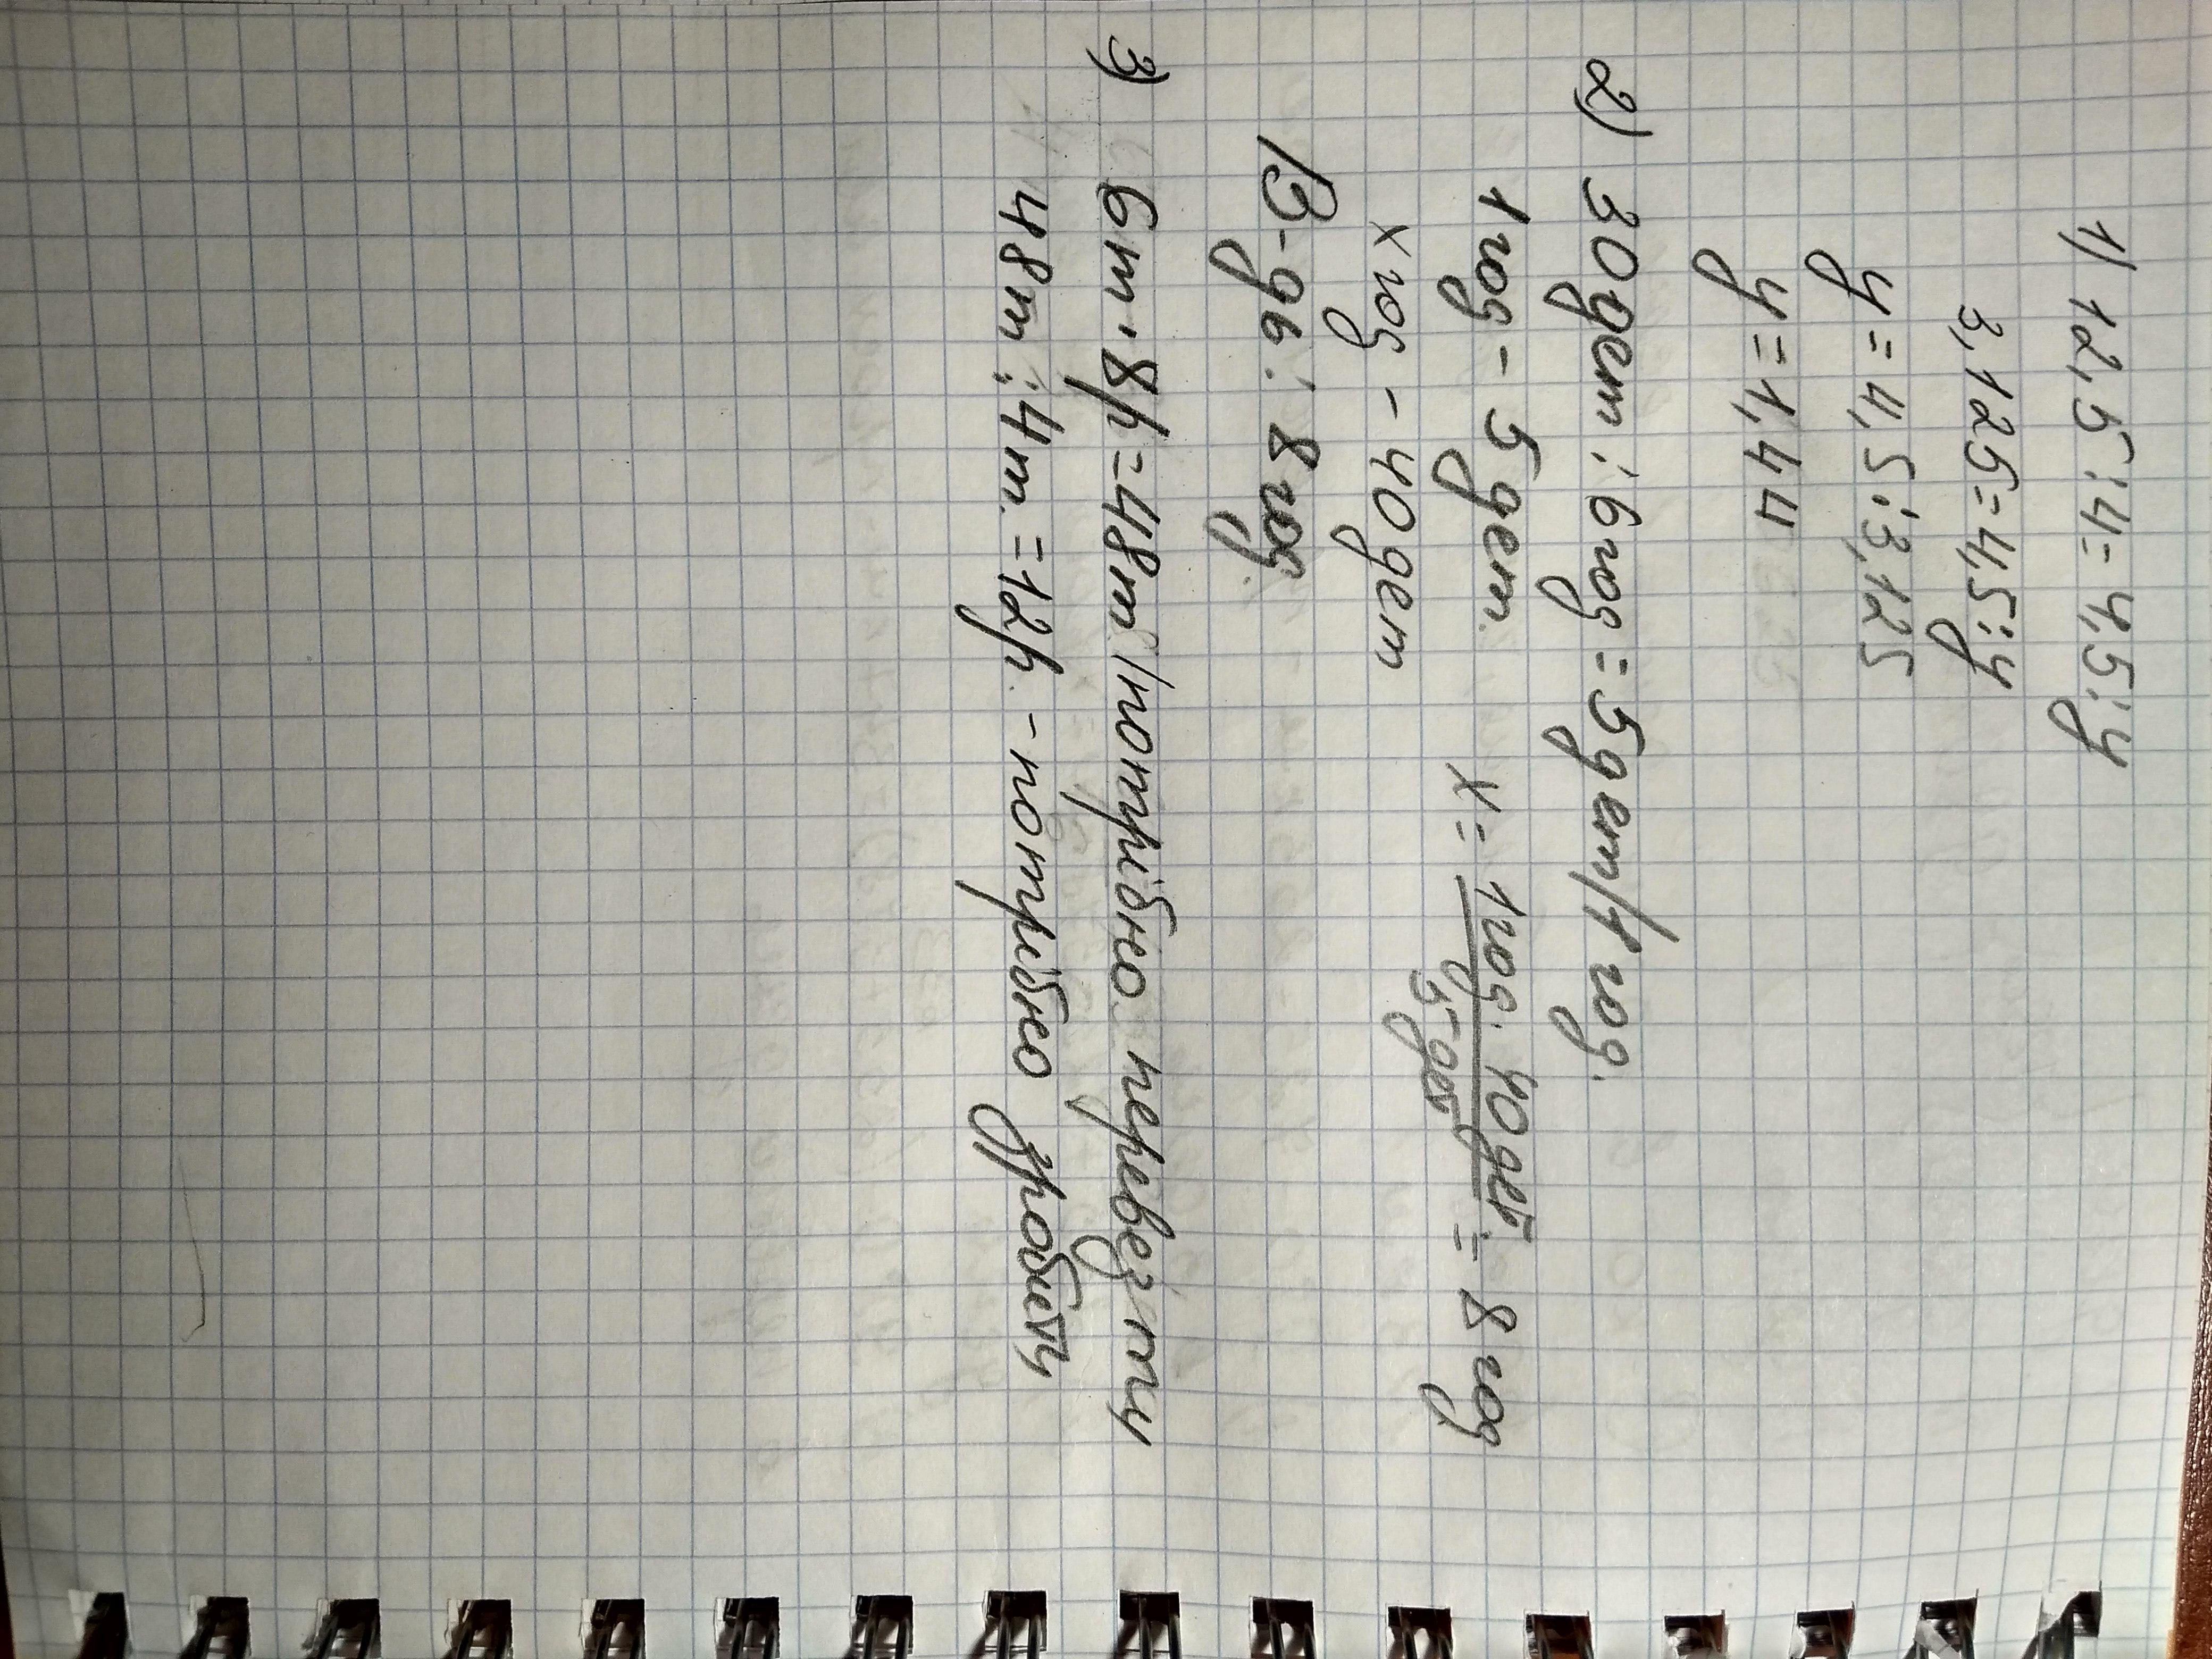 1) 12,5:4=4,5:y
3,125=4,5:y
y=4,5:3,125
y=1,44
2) 30дет:6год=5дет/1год.
1год-5дет.
x год-40дет
x=1год.40дет.=8год
5дет
В-дь: 8год.
3) 6т.8р=48т/потрібно перевезти
48т:4т.=12р.-потрібно зробити